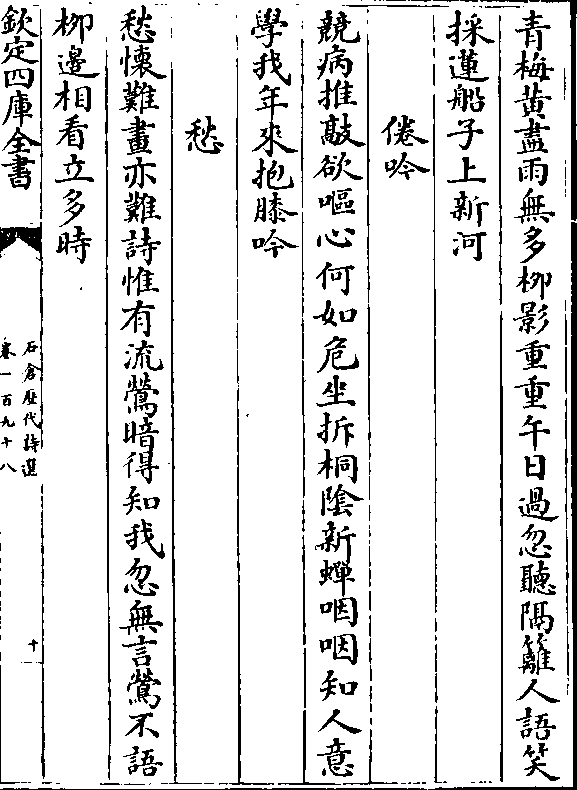 青梅黄盡雨無多柳影重重午日過忽聽隔籬人語笑
採蓮船子上新河
倦吟
競病推敲欲嘔心何如危坐拆桐陰新蟬咽咽知人意
學我年來抱膝吟
愁
愁懷難畫亦難詩惟有流鶯暗得知我忽無言鶯不語
柳邊相看立多時
欽定四庫全書
石倉歷代詩選
卷一百九十八
十